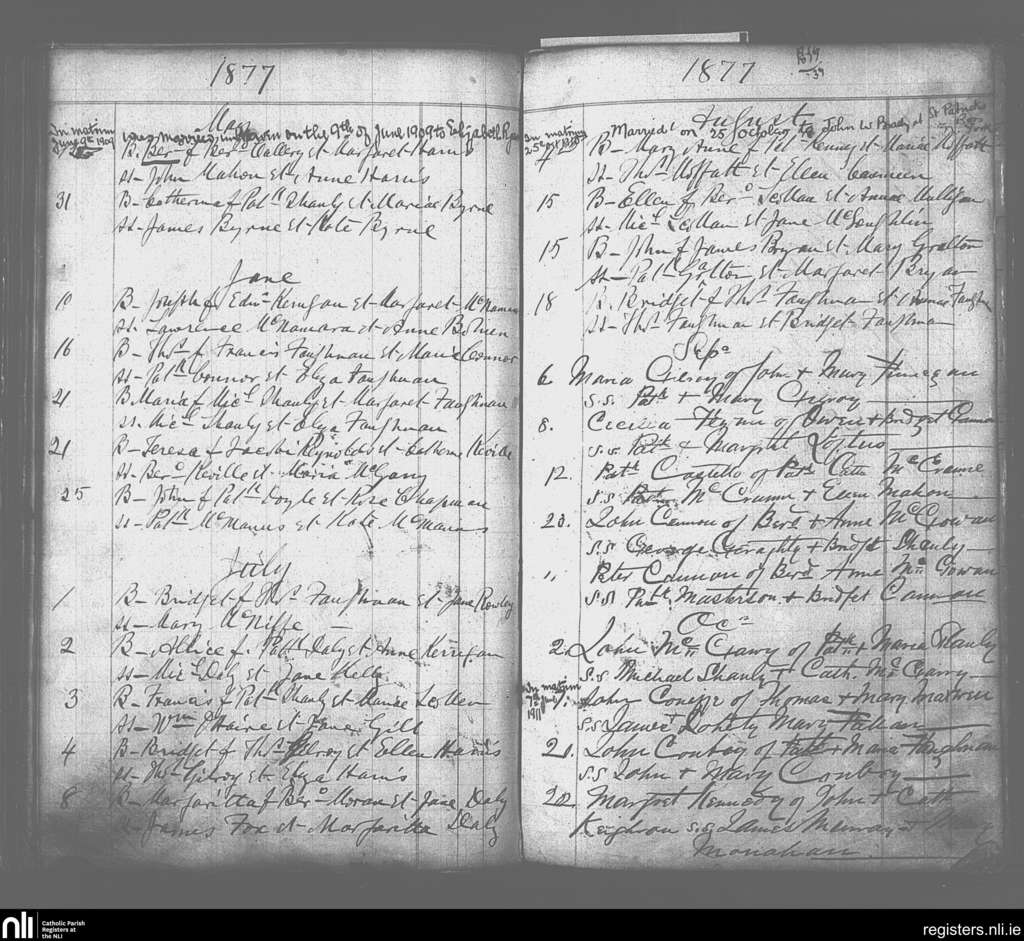 1877
May
In matrim
June 9th 1909
was married on the 9th of June 1909 to Elizabeth
B. Ber of Ber Gallery et Margaret Harris
ss - John Mahon et Anne Harris
31 B - Catherina f Patk Shanly et Maria Byrne
ss - James Byrne et Kate Byrne
June
10 B - Joseph f Edw Kerrigan et Margaret McNamara
ss - Lawrence McNamara et Anne
16 B - Thos f Francis Faughnan et Maria Connor
ss - Patk Connor et Eliza Faughnan
21 B Maria f Micl Shanly et Margaret Faughnan
ss Micl Shanly et Eliza Faughnan
21 B - Teresa f Reynolds et Catherine Neville
ss - Bero Neville et Maria McGarry
25 B - John f Patk Doyle et Rose Chapman
ss - Patk McManus et Kate McManus
July
1 B - Bridget f Thos Faughnan et Jane Rowley
ss - Mary McNiffe
2 B - Allice f Patk Daly et Anne Kerrigan
ss - Micl Daly et Jane Kelly
3 B - Francis f Patk Shanly et
ss - Wm et Gill
4 B - Bridget f Thos Gilroy et Ellen Harris
ss - Thos Gilroy et Eliza Harris
8 B - Margaritta f Bero Moran et Jane Daly
ss - James Fox et Margaritta Daly
1877
August
In matrim
Married on 25 October to John W Brady at St Patrick
7 B - Mary Anne f Pat Kenny et Mariae Moffatt
ss - Thos Moffatt et Ellen
15 B - Ellen f Bero et Annae Mulligan
ss - Micl et Jane McLoughlin
15 B - John f James Bryan et Mary Gralton
ss - Patk Gralton et Margaret Bryan
18 B. Bridget f Thos Faughnan et Annae
ss - Thos Faughnan et Bridget Faughnan
Sepr
6 Maria Gilroy of John + Mary Finnegan
s.s. Patk + Mary Gilroy
8. Cecilia Flynn of Owen + Bridget
s.s. Patk & Margrtt Loftus
12. Patk Costello of Patk Cath McCrann
s.s. McCrann + Ellen Mahon
20. John Cannon of Berd + Anne McGowan
s.s. George Geraghty + Bridget Shanly
,, Peter Cannon of Berd Anne McGowan
s.s. Patk Masterson + Bridget Cannon
Ocr
2. John McGarry of Patk + Maria Shanly
s.s Michael Shanly + Cath. McGarry
In matrim
1911
John of Thomas + Mary
s.s James Doherty Mary
21. John Conboy of Patk + Maria Faughnan
s.s John + Mary Conboy
22. Margret Kennedy of John + Cath
Keighron s.s James Murray +
Monahan
nli
Catholic Parish
Registers at
the NLI
registers.nli.ie